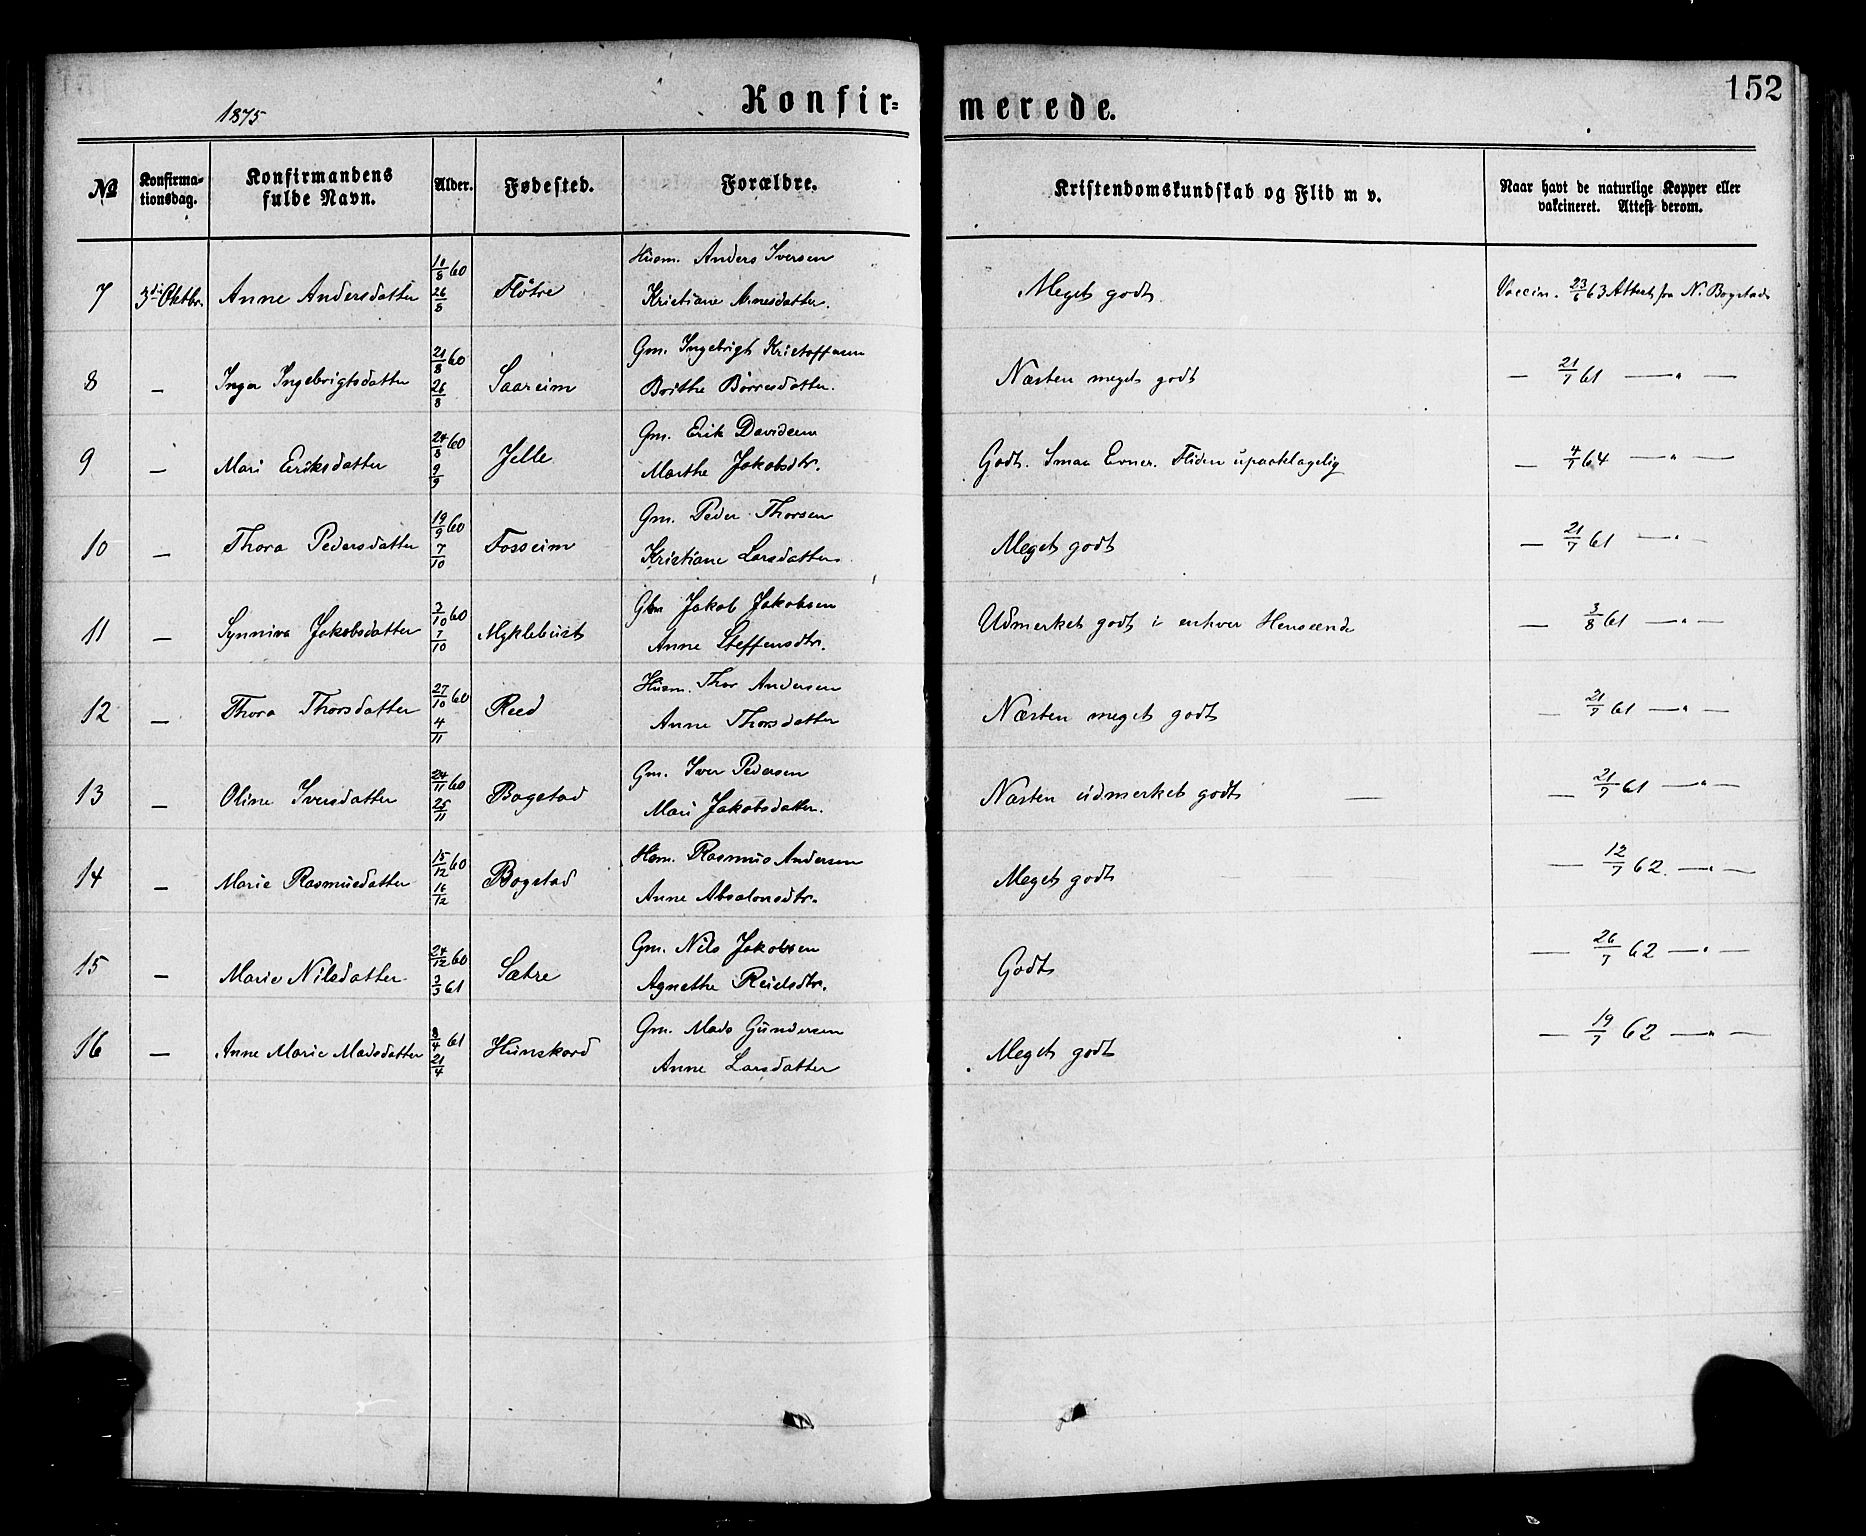 152
1875
Konfir= merede.
№ Konfirma-tionsdag. Konfirmandens fulde Navn. Alder. Fødested. Forældre. Kristendomskundskab og Flid m v. Naar havt de naturlige Kopper eller vakcineret. Attest derom.
7 3die Oktbr. Anne Andersdatter 10/8 60 26/8 Fløtre Husm. Anders Iversen Kristiane Arnesdatter. Meget godt. Vaccin. 23/6 63 Attest fra N. Bogstad
8 — Inger Ingebrigtsdatter 21/8 60 26/8 Saareim Gm. Ingebrigt Kristoffersen Brithe Børresdatter. Næsten meget godt — 21/7 61 —"—
9 — Mari Eriksdatter 24/8 60 9/9 Jelle Gm. Erik Davidsen Marthe Jakobsdtr. Godt. Smaa Evner. Fliden upaaklagelig — 4/7 64 —"—
10 — Thora Pedersdatter 19/9 60 7/10 Fosseim Gm. Peder Thorsen Kristiane Larsdatter. Meget godt — 21/7 61 —"—
11 — Synniva Jakobsdatter 3/10 60 7/10 Myklebust Jakob Jakobsen Anne Steffensdtr. Udmerket godt i enhver Henseende — 3/8 61 —"—
12 — Thora Thorsdatter 27/10 60 4/11 Reed Husm. Thor Andersen Anne Thorsdatter Næsten meget godt — 21/7 61 —"—
13 — Oline Iversdatter 24/11 60 25/11 Bogstad Gm. Iver Pedersen Mari Jakobsdatter. Næsten udmerket godt — — 21/7 61 —"—
14 — Marie Rasmusdatter 15/12 60 16/12 Bogstad Hsm. Rasmus Andersen Anne Absalonsdtr. Meget godt — 12/7 62. —"—
15 — Marie Nilsdatter 24/12 60 3/3 61 Sætre Gm. Nils Jakobsen Agnethe Reielsdtr. Godt — 26/7 62 —"—
16 — Anne Marie Madsdatter 8/4 61 21/4 Hunskord Gm. Mads Gundersen Anne Larsdatter Meget godt — 19/7 62 —"—